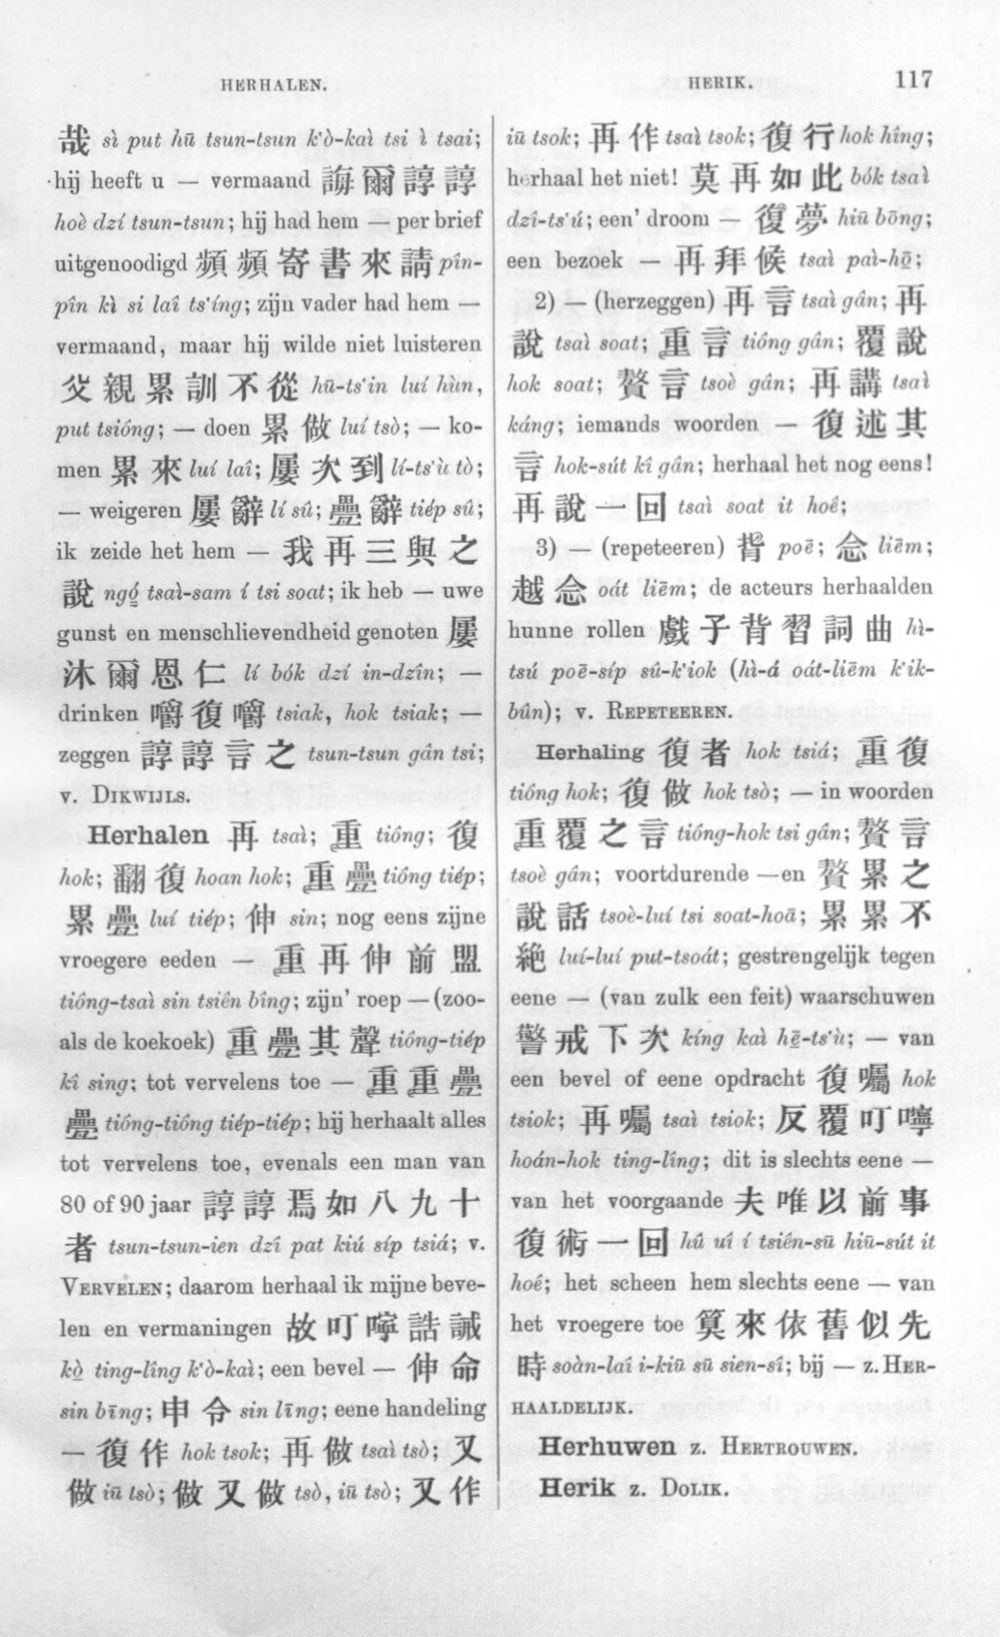 HERHALEN.
HERIK.
117
哉 sì put hū tsun-tsun k'ò-kaì tsi ì tsai;
hij heeft u — vermaand 誨爾諄諄
hoè dzí tsun-tsun; hij had hem — per brief
uitgenoodigd 頻頻寄書來請 pîn-
pîn kì si laî ts'íng; zijn vader had hem —
vermaand, maar hij wilde niet luisteren
父親累訓不從 hū-ts'in luí hùn,
put tsióng; — doen 累做 luí tsò; — ko-
men 累來 luí laî; 屢次到 lí-ts'ù tò;
— weigeren 屢辭 lí sû; 疊辭 tiép sû;
ik zeide het hem — 我再三與之
說 ngó tsaì-sam í tsi soat; ik heb — uwe
gunst en menschlievendheid genoten 屢
沐爾恩仁 lí bók dzí in-dzîn; —
drinken 嚼復嚼 tsiak, hok tsiak; —
zeggen 諄諄言之 tsun-tsun gân tsi;
v. DIKWIJLS.
Herhalen 再 tsaì; 重 tióng; 復
hok; 翻復 hoan hok; 重疊 tióng tiép;
累疊 luí tiép; 伸 sin; nog eens zijne
vroegere eeden — 重再伸前盟
tióng-tsaì sin tsiên bîng; zijn' roep — (zoo-
als de koekoek) 重疊其聲 tióng-tiép
kî sing; tot vervelens toe — 重重疊
疊 tióng-tióng tiép-tiép; hij herhaalt alles
tot vervelens toe, evenals een man van
80 of 90 jaar 諄諄焉如八九十
者 tsun-tsun-ien dzî pat kiú síp tsiá; v.
VERVELEN; daarom herhaal ik mijne beve-
len en vermaningen 故叮嚀誥誡
kò ting-lîng k'ò-kaì; een bevel — 伸命
sin bīng; 申令 sin līng; eene handeling
— 復作 hok tsok; 再做 tsaì tsò; 又
做 iū tsò; 做又做 tsò, iū tsò; 又作
iū tsok; 再作 tsaì tsok; 復行 hok hîng;
herhaal het niet! 莫再如此 bók tsaì
dzî-ts'ú; een' droom — 復夢 hiū bōng;
een bezoek — 再拜候 tsaì paì-hō;
2) — (herzeggen) 再言 tsaì gân; 再
說 tsaì soat; 重言 tióng gân; 覆說
hok soat; 贅言 tsoè gân; 再講 tsaì
káng; iemands woorden — 復述其
言 hok-sút kî gân; herhaal het nog eens!
再說一回 tsaì soat it hoê;
3) — (repeteeren) 揹 poē; 念 liēm;
越念 oát liēm; de acteurs herhaalden
hunne rollen 戲子背習詞曲 hì-
tsú poē-síp sû-k'iok (hì-á oát-liēm k'ik-
bûn); v. REPETEEREN.
Herhaling 復者 hok tsiá; 重復
tióng hok; 復做 hok tsò; — in woorden
重覆之言 tióng-hok tsi gân; 贅言
tsoè gân; voortdurende —en 贅累之
說話 tsoè-luí tsi soat-hoā; 累累不
絕 luí-luí put-tsoát; gestrengelijk tegen
eene — (van zulk een feit) waarschuwen
警戒下次 kíng kaì hē-ts'ù; — van
een bevel of eene opdracht 復囑 hok
tsiok; 再囑 tsaì tsiok; 反覆叮嚀
hoán-hok ting-lîng; dit is slechts eene —
van het voorgaande 夫唯以前事
復術一回 hû uî í tsiên-sū hiū-sút it
hoê; het scheen hem slechts eene — van
het vroegere toe 算來依舊似先
時 soàn-laî i-kiū sū sien-sî; bij — z. HER-
HAALDELIJK.
Herhuwen z. HERTROUWEN.
Herik z. DOLIK.